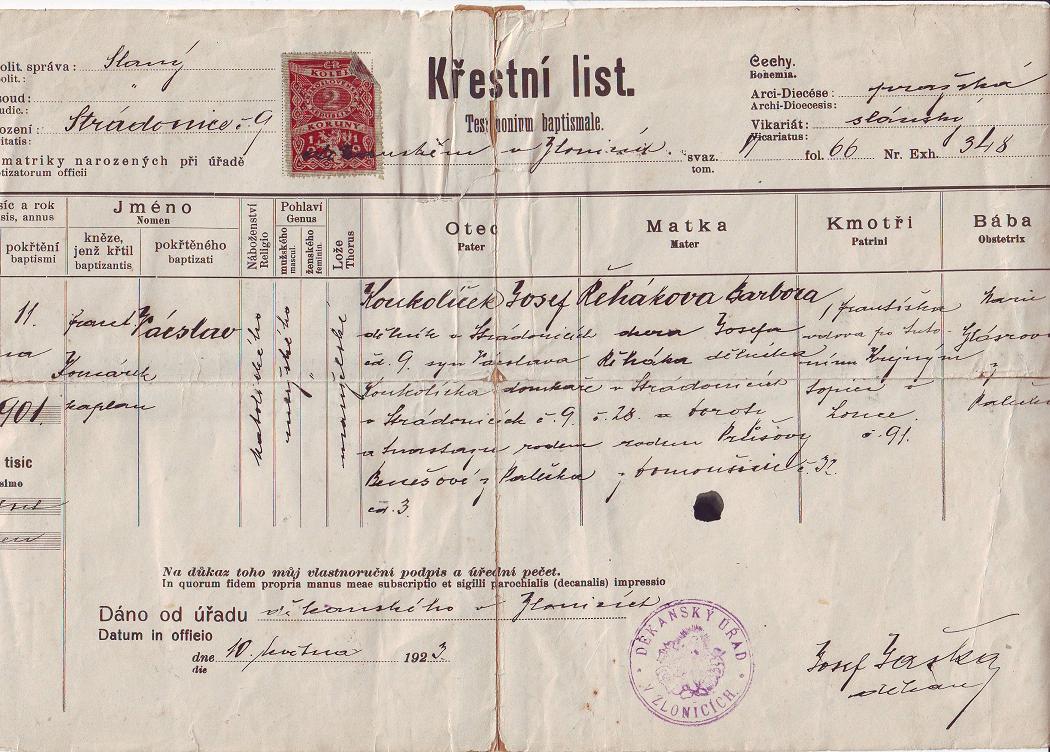 olit. správa: Slaný
olit.:
oud:
udic.:
ození: Strádonice č 9
itatis:
matriky narozených při úřadě
tizatorum officii
ČR
KOLEK
2
KORUNY
Křestní list.
Testimonium baptismale.
v Zlonicích.
svaz.
tom.
fol. 66 Nr. Exh. 348
Čechy.
Bohemia.
Arci-Diecése: pražská
Archi-Dioecesis:
Vikariát: slánský
Vicariatus:
síc a rok
sis, annus
pokřtění
baptismi
Jméno
Nomen
kněze,
jenž křtil
baptizantis
pokřtěného
baptizati
Náboženství
Religio
Pohlaví
Genus
mužského
mascul.
ženského
feminin.
Lože
Thorus
Otec
Pater
Matka
Mater
Kmotři
Patrini
Bába
Obstetrix
11.
901
tisíc
simo
Frant.
kaplan
Václav
katolického
mužského
manželské
Koukolíček Josef
dělník v Strádonicích
čd. 9, syn Václava
Koukolíčka domkáře
v Strádonicích č. 9
a rodem
Benešové z Palička
čd. 3.
Řehákova Barbora
dcera Josefa
Řeháka dělníka
v Strádonicích
č. 28. a
rodem
č. 32
Františka
vdova po Anto-
nínu
topiči v
č. 91.
Marie
z
Na důkaz toho můj vlastnoruční podpis a úřední pečet.
In quorum fidem propria manus meae subscriptio et sigilli parochialis (decanalis) impressio
Dáno od úřadu děkanského v Zlonicích
Datum in officio
dne 10. května 1923.
die
DĚKANSKÝ ÚŘAD V ZLONICÍCH.
Josef
děkan